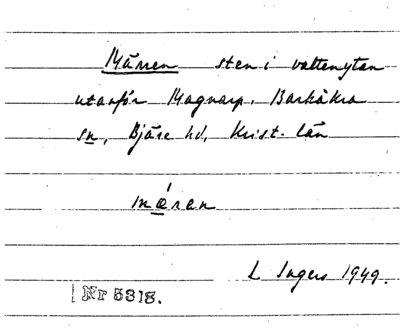 Märren sten i vattenytan
utanför Magnarp, Barkåkra
sn, Bjäre hd, Krist. län
mǽran
L Ingers 1949.
Nr 5318.